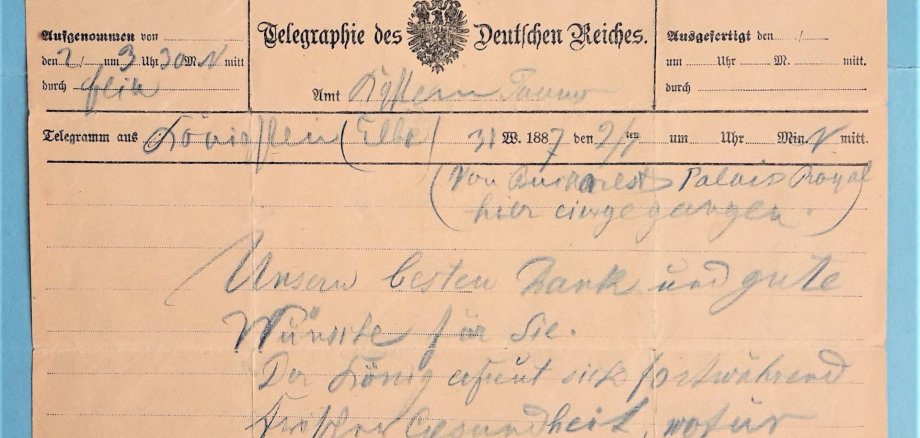 Telegraphie des Deutschen Reiches.
Aufgenommen von
den 2/ um 3 Uhr 30 M. N mitt
durch
Amt Taunus
Ausgefertigt den /
um Uhr M. mitt.
durch
Telegramm aus Königstein (Elbe) 31 W. 1887 den 2/1 ten um Uhr Min. N mitt.
(Von Bukarest Palais Royal
hier eingegangen.)
Unsern besten Dank und gute
Wünsche für Sie.
Der König erfreut sich fortwährend
frischer Gesundheit, wofür